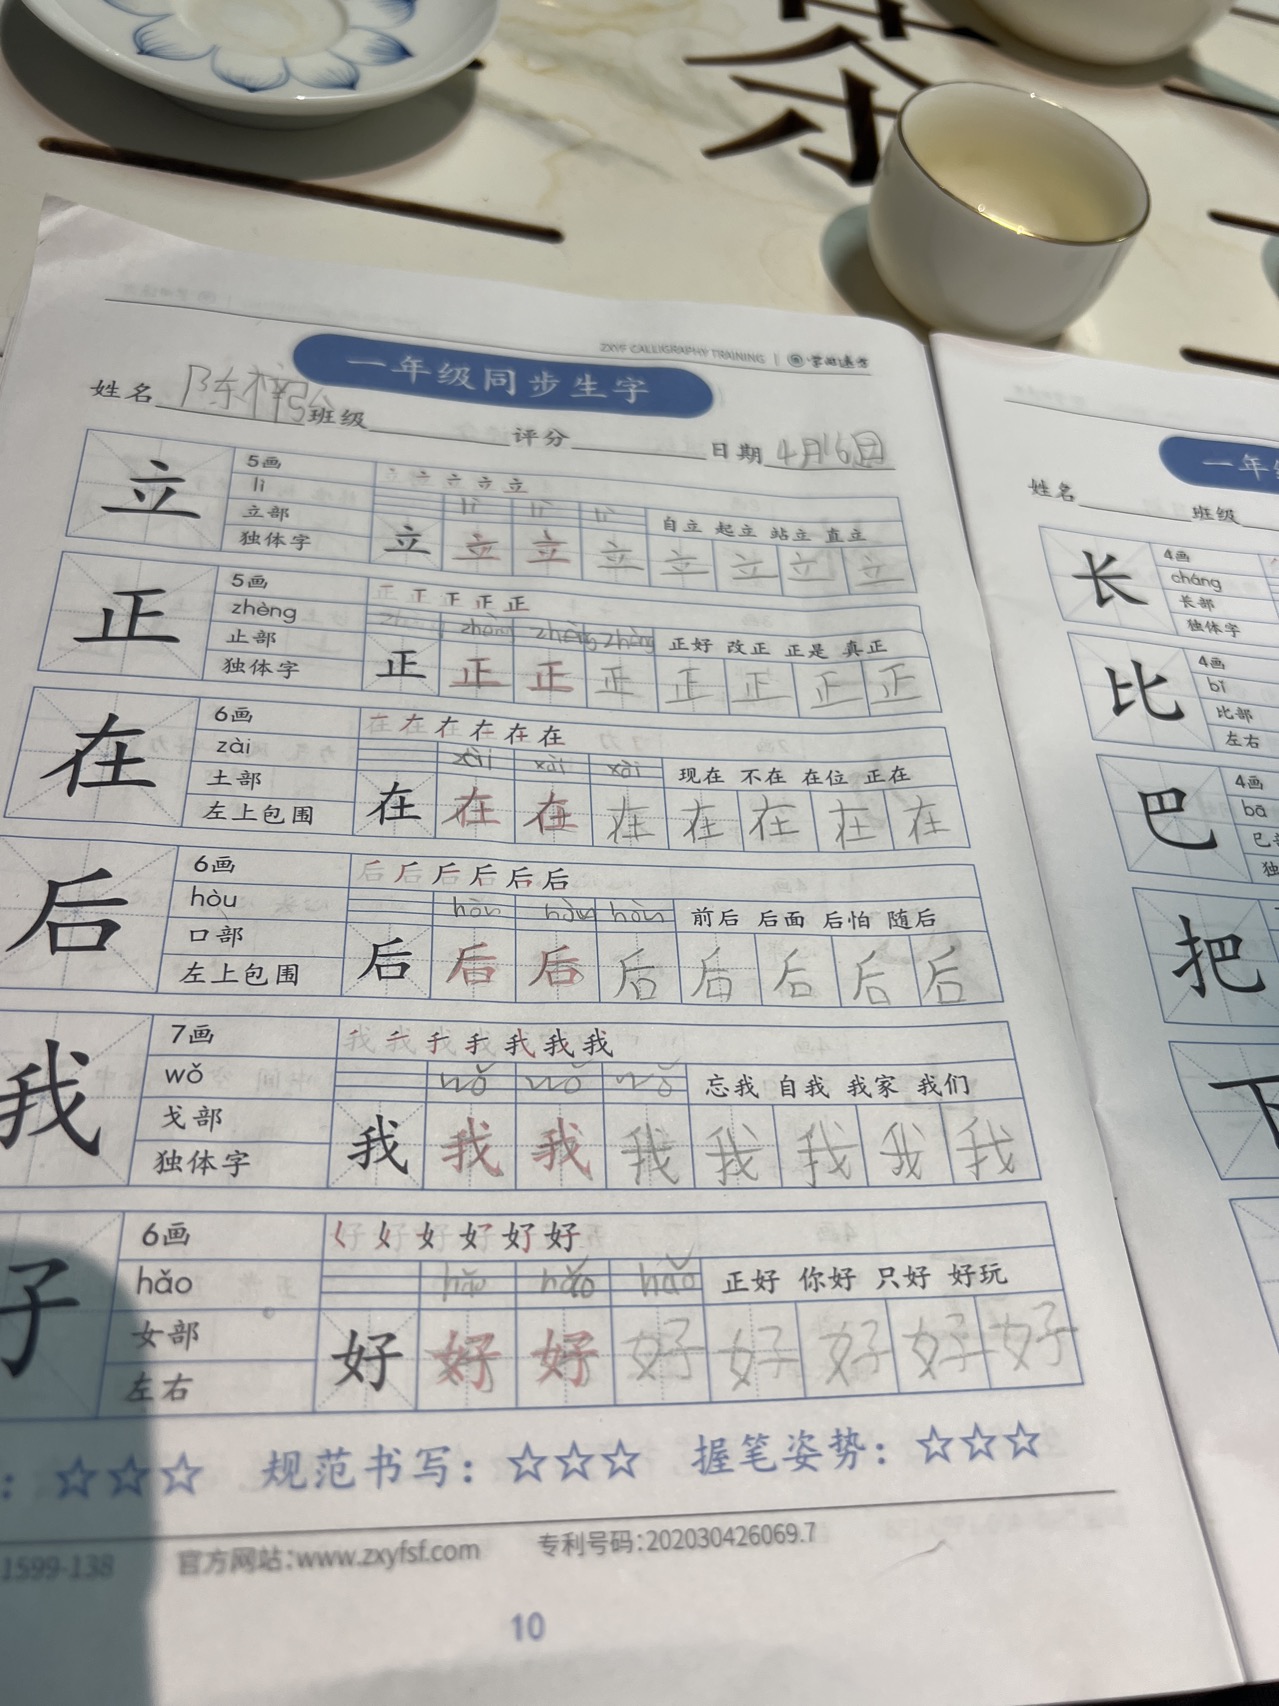 茶
ZXYF CALLIGRAPHY TRAINING
一年级同步生字
姓名 陈梓 班级 评分 日期 4月16日
立
5画
lì
立部
独体字
立 立 立 立
lì lì lì
自立 起立 站立 直立
立 立 立 立 立 立 立
正
5画
zhèng
止部
独体字
正 正 正 正 正
zhèng zhèng zhèng zhèng
正好 改正 正是 真正
正 正 正 正 正 正 正 正
在
6画
zài
土部
左上包围
在 在 在 在 在 在
zài zài zài
现在 不在 在位 正在
在 在 在 在 在 在 在 在
后
6画
hòu
口部
左上包围
后 后 后 后 后 后
hòu hòu hòu
前后 后面 后怕 随后
后 后 后 后 后 后 后 后
我
7画
wǒ
戈部
独体字
我 我 我 我 我 我 我
wǒ wǒ wǒ
忘我 自我 我家 我们
我 我 我 我 我 我 我 我
6画
hǎo
女部
左右
好 好 好 好 好 好
hǎo hǎo hǎo
正好 你好 只好 好玩
好 好 好 好 好 好 好 好
: ☆☆☆ 规范书写: ☆☆☆ 握笔姿势: ☆☆☆
1599-138 官方网站:www.zxyfsf.com 专利号码:202030426069.7
10
一年
姓名 班级
长
4画
cháng
长部
独体字
比
4画
bǐ
比部
左右
巴
4画
bā
把
下